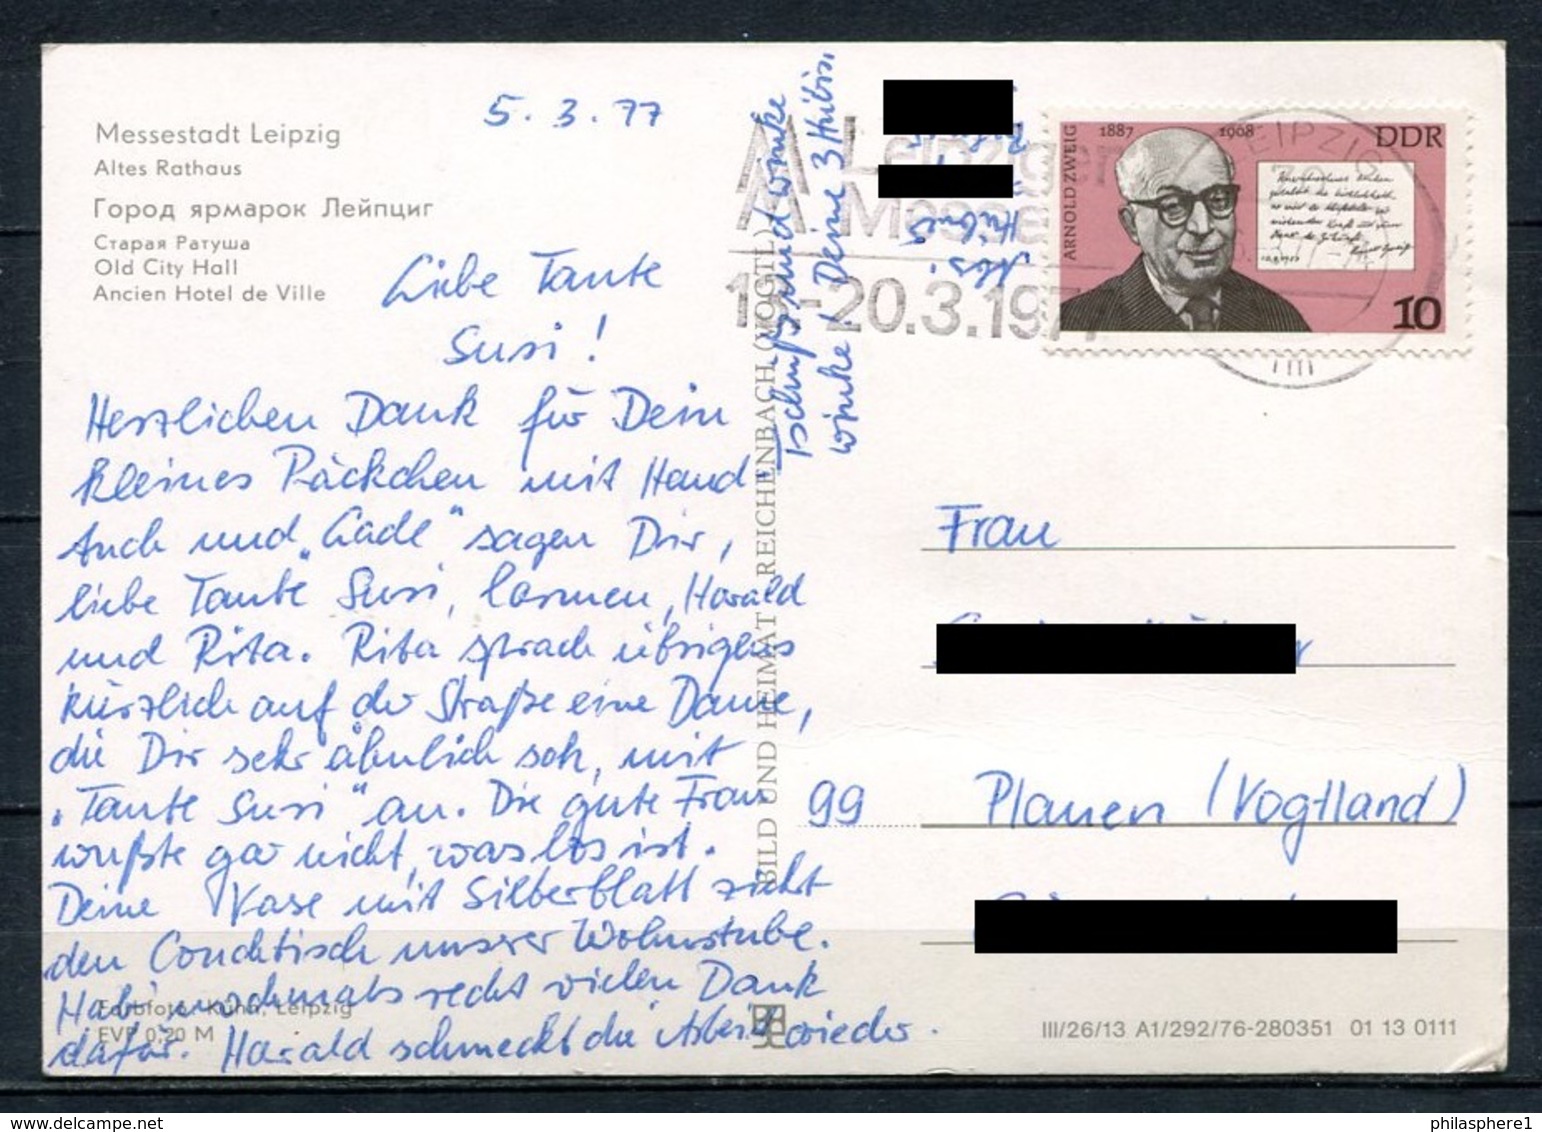 Messestadt Leipzig
Altes Rathaus
Город ярмарок Лейпциг
Старая Ратуша
Old City Hall
Ancien Hotel de Ville
5.3.77
Liebe Tante
Susi!
Herzlichen Dank für Dein
kleines Päckchen mit Hand-
tuch und „Lade“ sagen Dir,
liebe Tante Susi, Carmen, Harald
und Rita. Rita sprach übrigens
kürzlich auf der Straße eine Dame,
die Dir sehr ähnlich sah, mit
„Tante Susi“ an. Die gute Frau
wußte gar nicht, was los ist.
Deine Vase mit Silberblatt ziert
den Couchtisch unserer Wohnstube.
Hab nochmals recht vielen Dank
dafür. Harald schmeckt die Arbeit wieder.
Tschüß und winke
winke! Deine 3 Hübis.
Farbfoto: Kühn, Leipzig
EVP 0,20 M
BILD UND HEIMAT REICHENBACH (VOGTL)
Leipziger
Messe
13.-20.3.1977
LEIPZIG
ARNOLD ZWEIG
1887 1968
DDR
10
Frau
99 Plauen (Vogtland)
III/26/13 A1/292/76-280351 01 13 0111
philasphere1